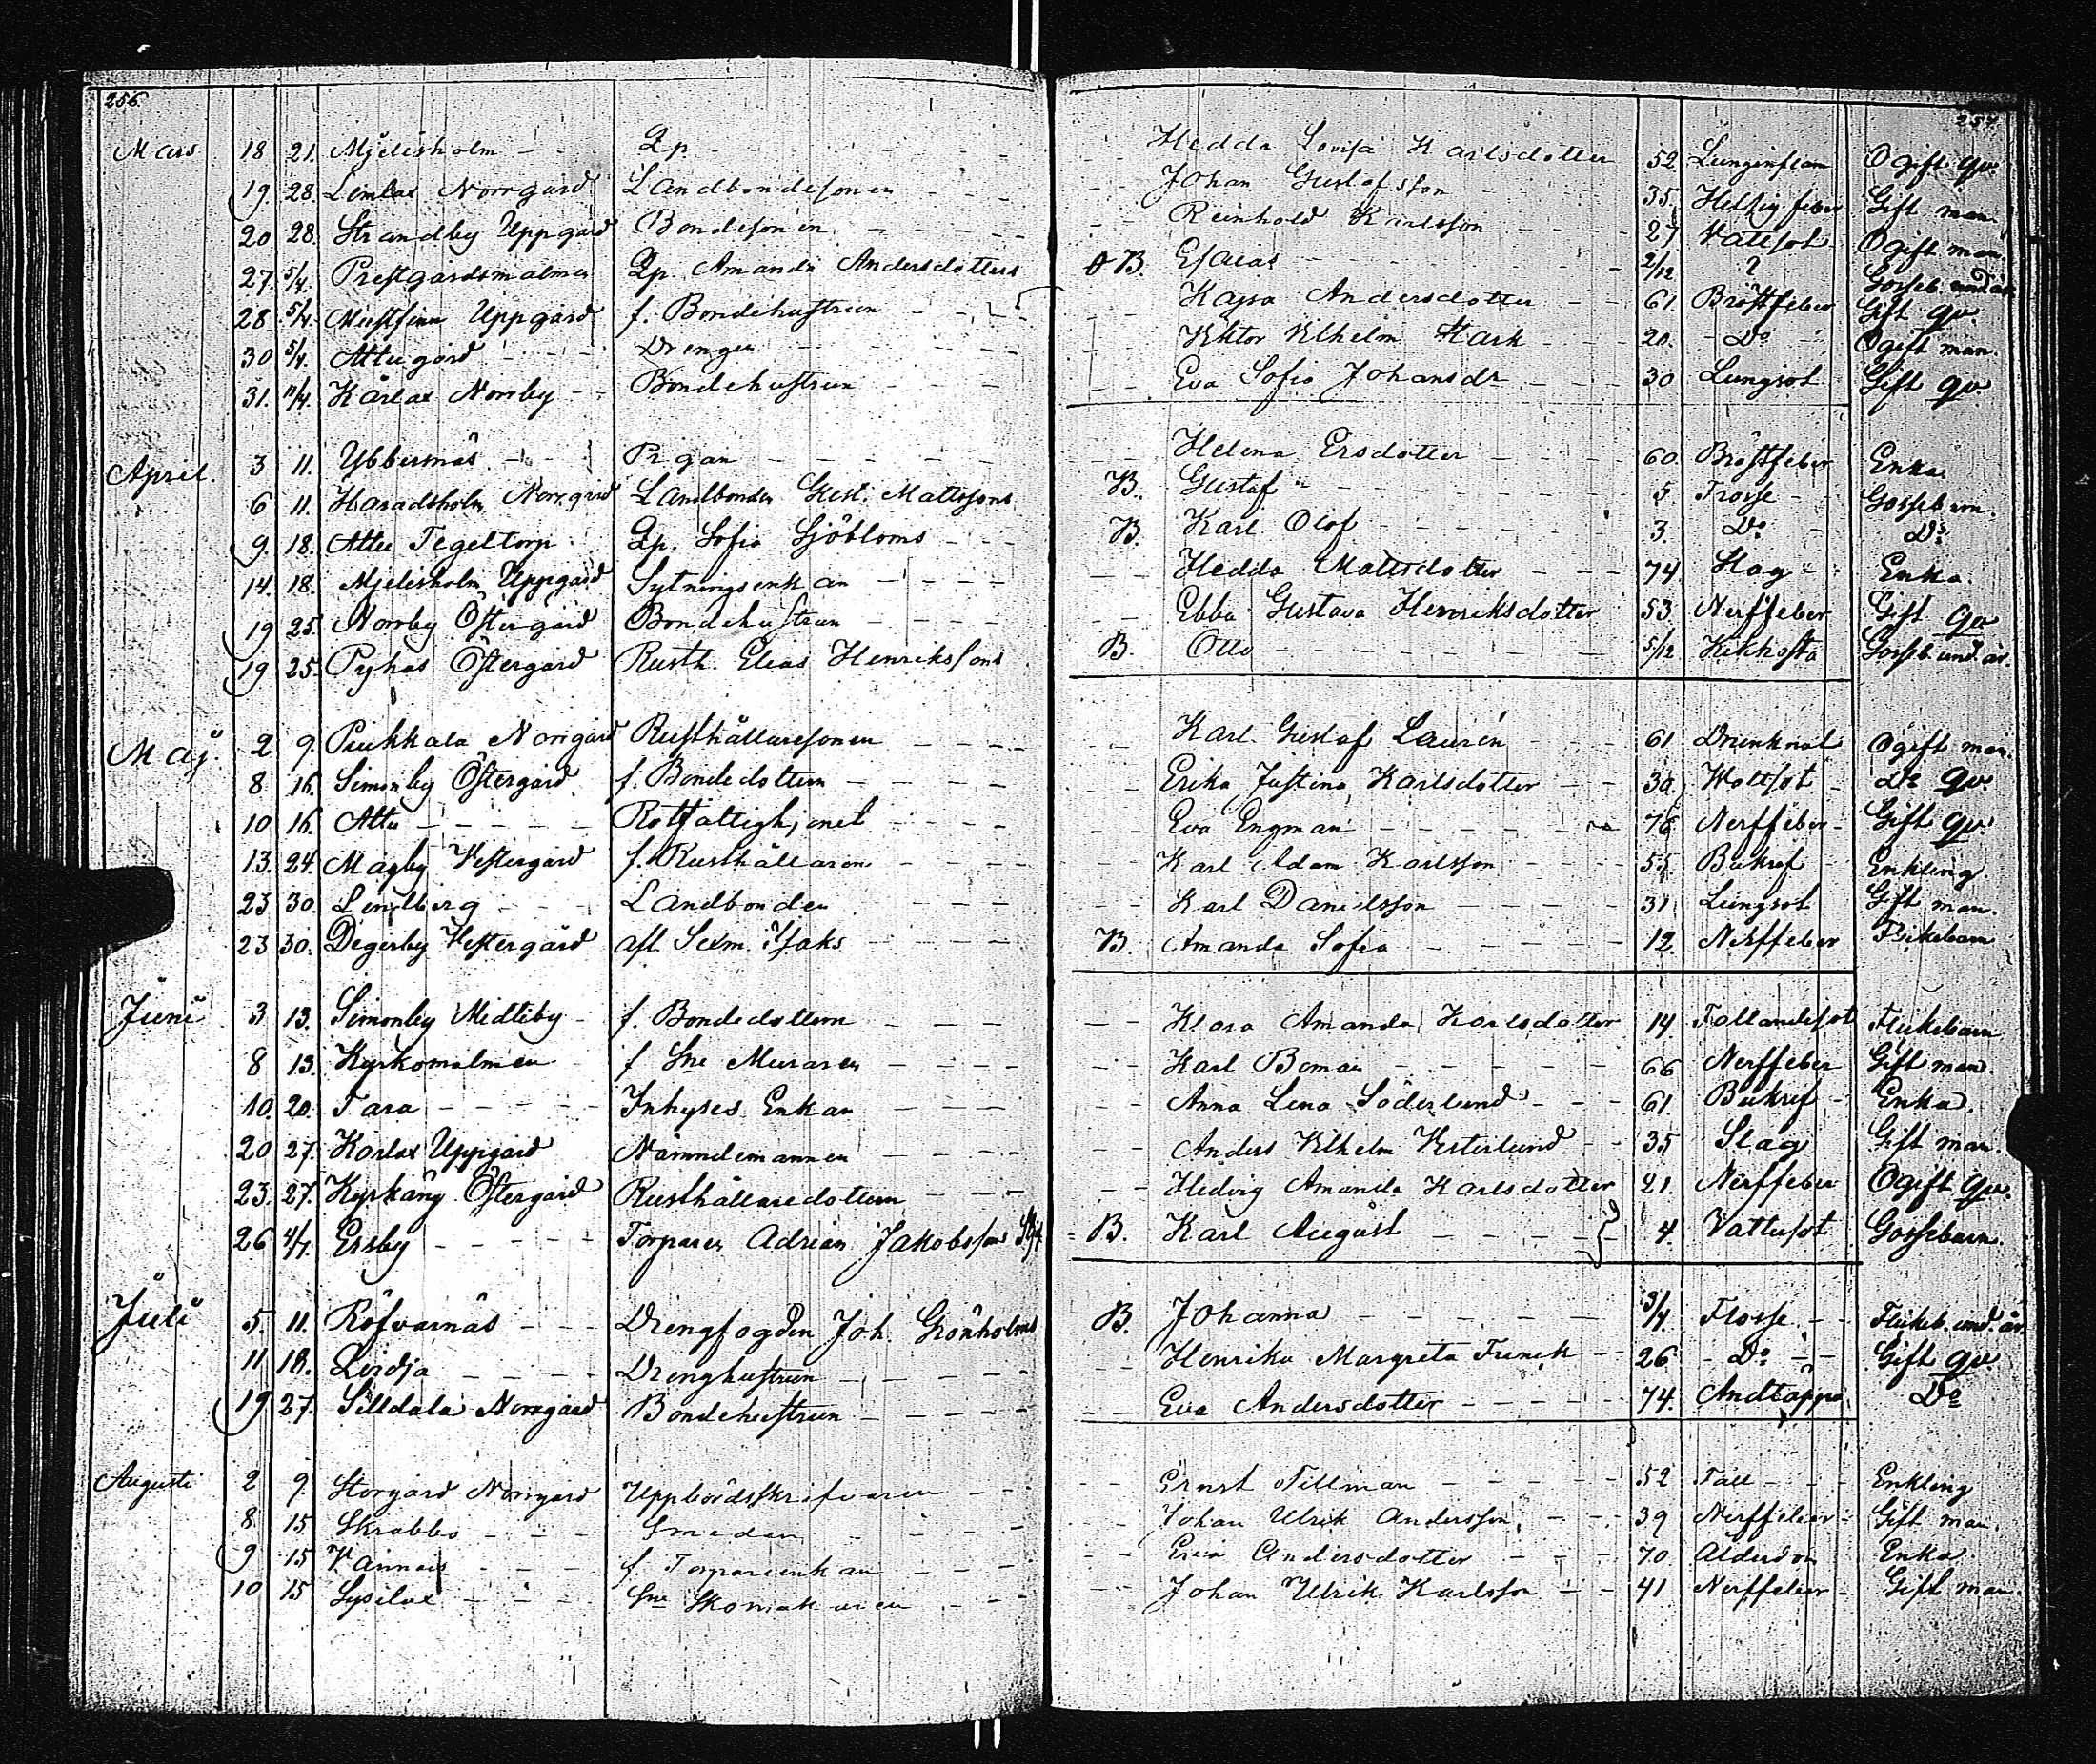 256. 257.
Mars 18 21. Mjelisholm Qp. Hedda Lovisa Karlsdotter 52 Lunginflam Ogift qv.
19. 28. Lemlax Norrgård Landbondesonen Johan Gustafsson 35. Hetsig feber Gift man
20 28. Strandby Uppgård Bondesonen Reinhold Karlsson 27 Vattusot Ogift man.
27. 5/4. Prestgårdsmalmen Qp. Amanda Andersdotters oB. Esaias 2/12 ? Gosseb. und. år
28. 5/4. Mustfinn Uppgård f. Bondehustrun Kajsa Andersdotter 61. Bröstfeber Gift qv.
30 5/4. Attu gård Drengen Viktor Vilhelm Stark 20. Do Ogift man.
31. 11/4. Kärlax Norrby Bondehustrun Eva Sofia Johansdr 30 Lungsot Gift qv.
April. 3 11. Ybbersnäs Pigan Helena Ersdotter 60. Bröstfeber Enka.
6 11. Haradsholm Norrgård Landbonden Gust. Mattssons B. Gustaf 5 Trosse Gossebarn.
9. 18. Attu Tegeltorp Qp. Sofia Sjöbloms B. Karl Olof 3. Do Do
14. 18. Mjelisholm Uppgård Sytningsenkan Hedda Mattsdotter 74 Slag Enka.
19 25. Norrby Östergård Bondehustrun Ebba Gustava Henriksdotter 53. Nerffeber Gift qv
19 25. Pyhas Östergård Rusth. Elias Henrikssons B. Otto 5/12 Kikhosta Gosseb. und. år.
Maj. 2 9. Puukkala Norrgård Rusthållaresonen Karl Gustaf Laurén 61 Drunknat Ogift man.
8 16. Simonby Östergård f. Bondedottern Erika Justina Karlsdotter 30. Wattsot do qv.
10 16. Attu Rotfattighjonet Eva Engman 78 Nerffeber Gift qv.
13. 24. Mågby Vestergård f. Rusthållaren Karl Adam Karlsson 55 Bukref Enkling.
23 30. Lindberg Landbonden Karl Danielsson 31 Lungsot Gift man.
23 30. Degerby Vestergård afl. Sexm. Isaks B. Amanda Sofia 12. Nerffeber Flickebarn
Juni 3 13. Simonby Midtiby f. Bondedottern Klara Amanda Karlsdotter 14 Fallandesot Flickebarn
8 13 Kyrkomalmen f Sne Muraren Karl Boman 66 Nerffeber Gift man.
10. 20. Tara Inhyses Enkan Anna Lena Söderlund 61. Bukref Enka.
20 27. Korlax Uppgård Nämndemannen Anders Vilhelm Vesterlund 35 Slag Gift man.
23. 27. Kyrkäng Östergård Rusthållaredottern Hedvig Amanda Karlsdotter 21. Nerffeber Ogift qv.
26 4/7. Ersby Torparen Adrian Jakobssons B. Karl August 4 Vattusot Gossebarn.
Juli 5. 11. Röfvarnäs Drengfogden Joh. Grönholms B. Johanna 3/4 Trosse Flickeb. und. år.
11 18. Loidja Drenghustrun Henrika Margreta Funck 26 Do Gift qv
19 27. Silldala Norrgård Bondehustrun Eva Andersdotter 74. Andtäppa Do
Augusti 2 9. Storgård Norrgård Uppbördsskrifvaren Ernst Tillman 52 Fall Enkling
8 15 Skrabbo Smeden Johan Ulrik Andersson 39 Nerffeber Gift man.
9 15 f. Torpareenkan Eva Andersdotter 70. Ålderdom Enka
10 15 Sysilax Sne Skomakaren Johan Ulrik Karlsson 41 Nerffeber Gift man.